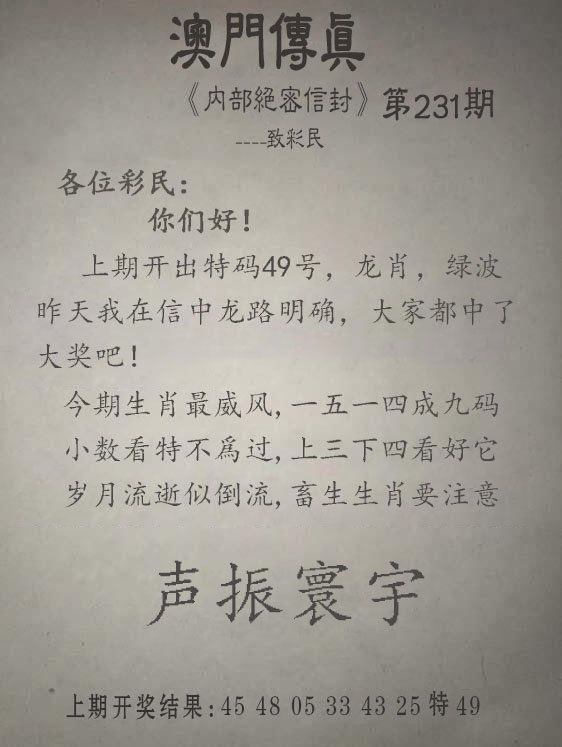 澳門傳眞
《内部絕密信封》第231期
----致彩民
各位彩民：
你们好！
上期开出特码49号，龙肖，绿波
昨天我在信中龙路明确，大家都中了
大奖吧！
今期生肖最威风,一五一四成九码
小数看特不爲过,上三下四看好它
岁月流逝似倒流,畜生生肖要注意
声振寰宇
上期开奖结果:45 48 05 33 43 25 特 49